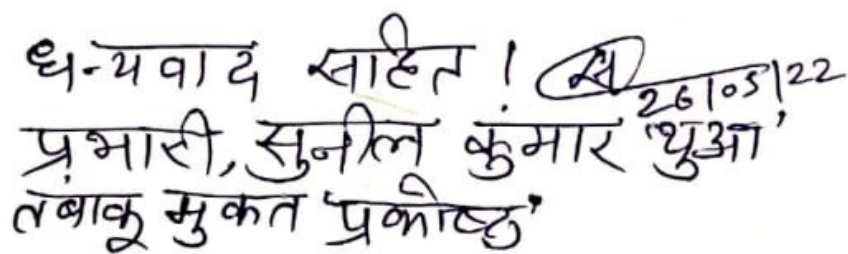 धन्यवाद सहित !
26/05/22
प्रभारी, सुनील कुमार 'धुआं'
तंबाकू मुक्त प्रकोष्ठ'